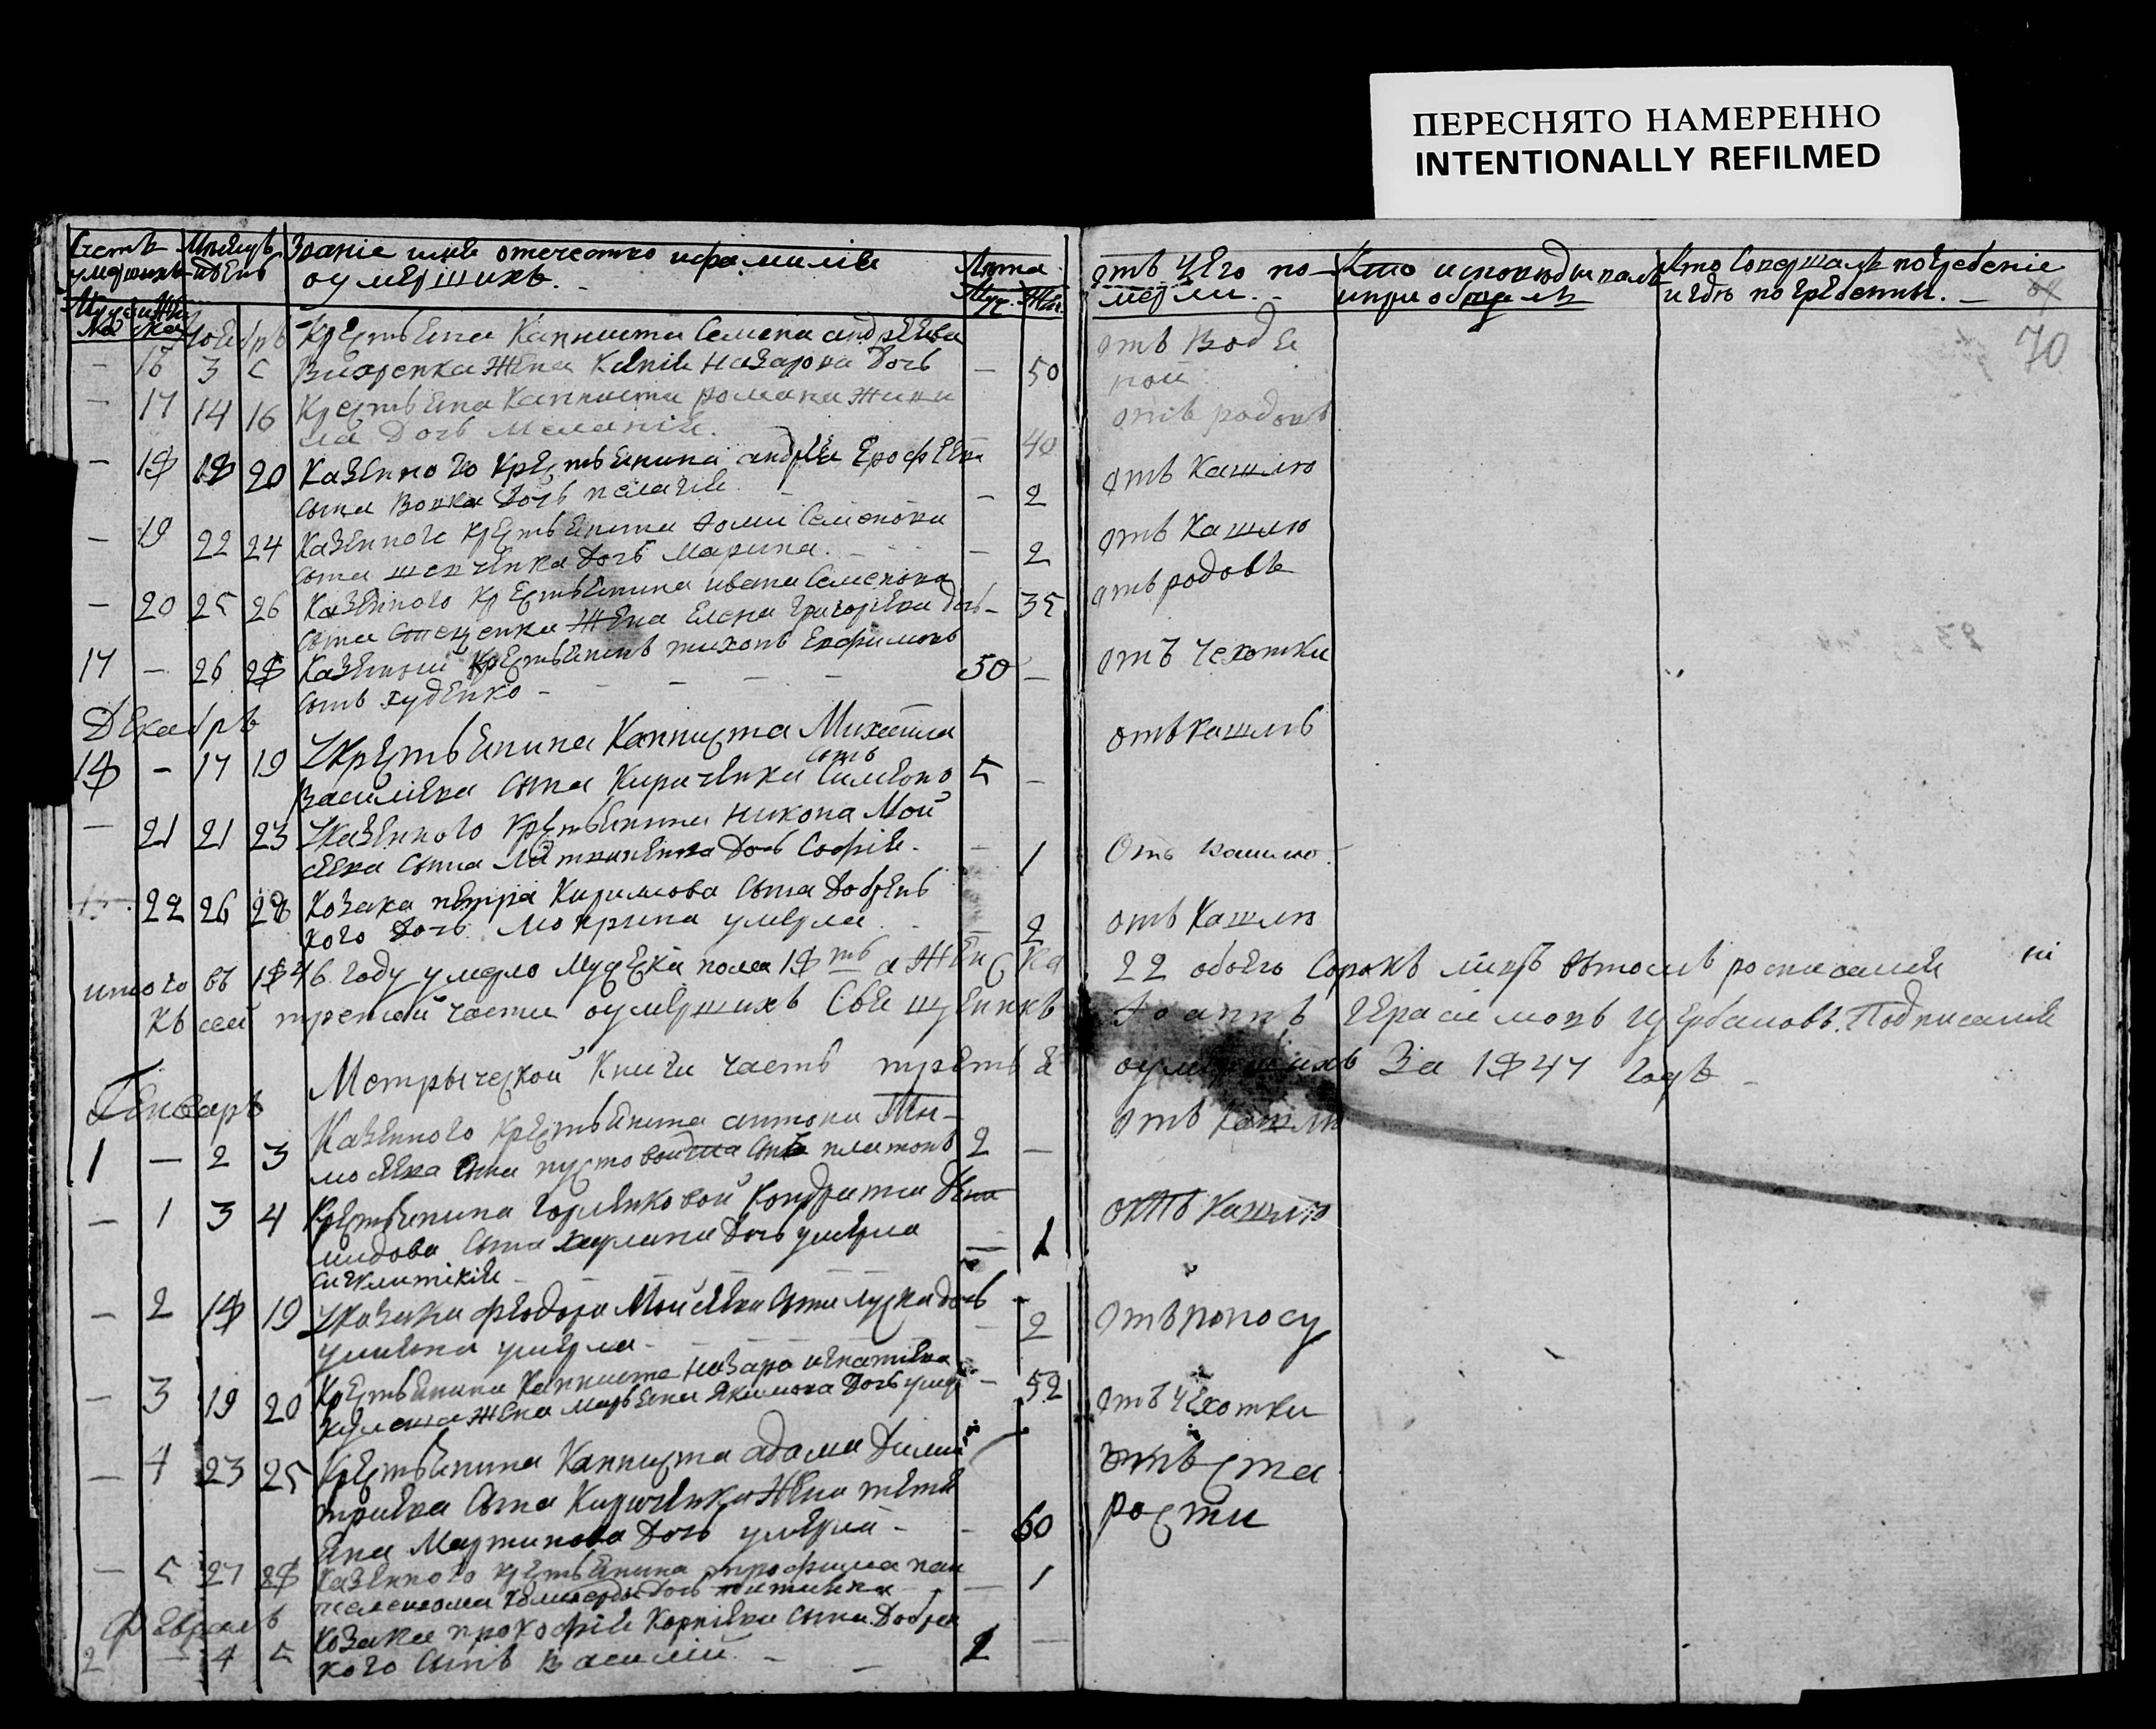 ПЕРЕСНЯТО НАМЕРЕННО
INTENTIONALLY REFILMED
Счетъ умершихъ
Мѣсяцъ и день
Званіе имя отечество и фамилія
оумершихъ.
Лѣта
Муж. Жен.
отъ чего по-
мерли.
Кто исповѣдывалъ
и приобщалъ
Кто совершалъ погребеніе
и гдѣ погребенны.
70
Ноябръ
Крестьѣнина Капниста Семена андрѣева
– 16 3 5 жена Назарова дочь – 50
отъ водя
ной
– 17 14 16 Крестьѣнина Капниста романа
дочь Меланія. 40
отъ родовъ
– 18 18 20 Казенного Крестьѣнина андрѣя Ерофѣева
сына Вовка дочь пелагія – 2
отъ Кашлю
– 19 22 24 Казенного Крестьѣнина Фоми Семенова
сына шевченка дочь Марина. – 2
отъ Кашлю
– 20 25 26 Казенного Крестьѣнина ивана Семенова
сына жена Елена григорѣева дочь – 35
отъ родовъ
17 – 26 28 Казенный Крестьѣнинъ тихонъ Евфимовъ
сынъ худѣнко – 50 –
отъ Чехотки
Декабръ
18 – 17 19 Укрестьѣнина Капниста Михаила
сынъ
василіева сына Киричѣнка Симѣонъ 5 –
отъ кашлъ
– 21 21 23 Указенного крестьѣнина Никона Мой
сѣева сына дочь Софія. – 1
Отъ кашлю.
22 26 28 Козака пѣтра Кирилова сына Добрѣнь
кого дочь Мокрина умерла 2
отъ Кашлю
итого въ 1846 году умерло Мужеска пола 18ть а Женска 22 обоего Сорокъ
къ сей третьей части оумершихъ Священикъ Іоаннъ Герасимовъ Щербаковъ. Подписалъ
Метрыческой Книги часть третья оумершихъ За 1847 годъ –
Генваръ
Казенного Крестьѣнина антона Ти-
1 – 2 3 мофѣева сына пустовойта сынъ платонъ 2 –
отъ кашлю
– 1 3 4 Крестьѣнина Горленковой Кондратия
сына дочь умерла – 1
синклитікія
отъ Кашлю
– 2 18 19 Указака феодора Мойсѣева сына луска дочь
уліяна умерла – – 2
отъ поносу
– 3 19 20 Крестьѣнина Капниста Назара игнатіева
жена марьѣна Якимова дочь умер – 52
отъ чехотки
– 4 23 25 Крестьѣнина Капниста адама Дими
тріева сына Киричѣнка жена тетя
яна Мартинова дочь умерла – – 60
отъ ста
рости
– 5 27 28 Казенного крестьѣнина трофима пан
дочь – 1
Февралъ
2 – 4 5 Козака прокофія Корніева сына Добрен
кого сынъ Василій. – – 2 –